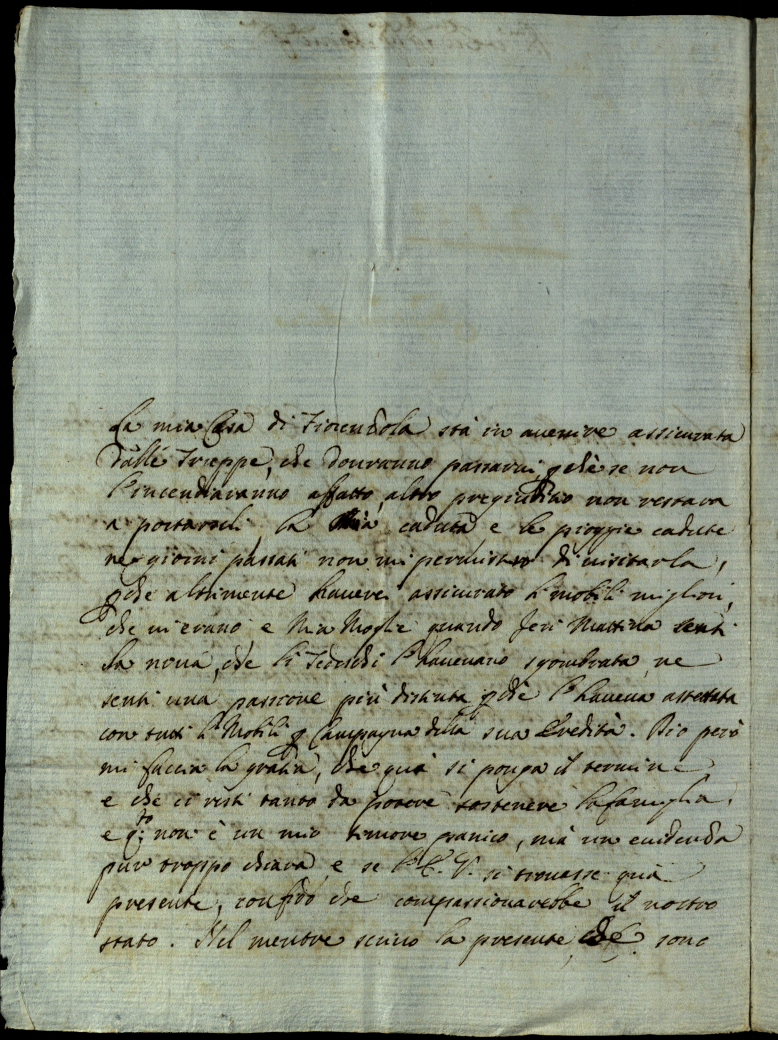 La mia Casa di Fiorenzola stà in avvenire assicurata
dalle Truppe, che dovranno passarvi, perche se non
l'incendiavanno affatto, altro pregiudizio non restava
a portarveli, la caduta, e le pioggie cadute
ne giorni passati non mi permisero di visitarla,
perche altrimente haverei assicurato li mobili migliori,
che vi erano, e Mia Moglie quando Jeri Mattina senti
la nova, che li Tedeschi l'havevano sgombrata, ne
senti una passione più distinta perche l'haveva assettata
con tutti li Mobili per Campagna della sua Eredità. Dio però
mi faccia la gratia, che quà si ponga il termine
e che ci resti tanto da potere sostenere la famiglia,
e q.to non è un mio timore panico, mà un evidenza
pur troppo chiara, e se l'E. V. si trovasse quà
presente, confido che compassionarebbe il nostro
stato. Nel mentre scrivo la presente, che sono